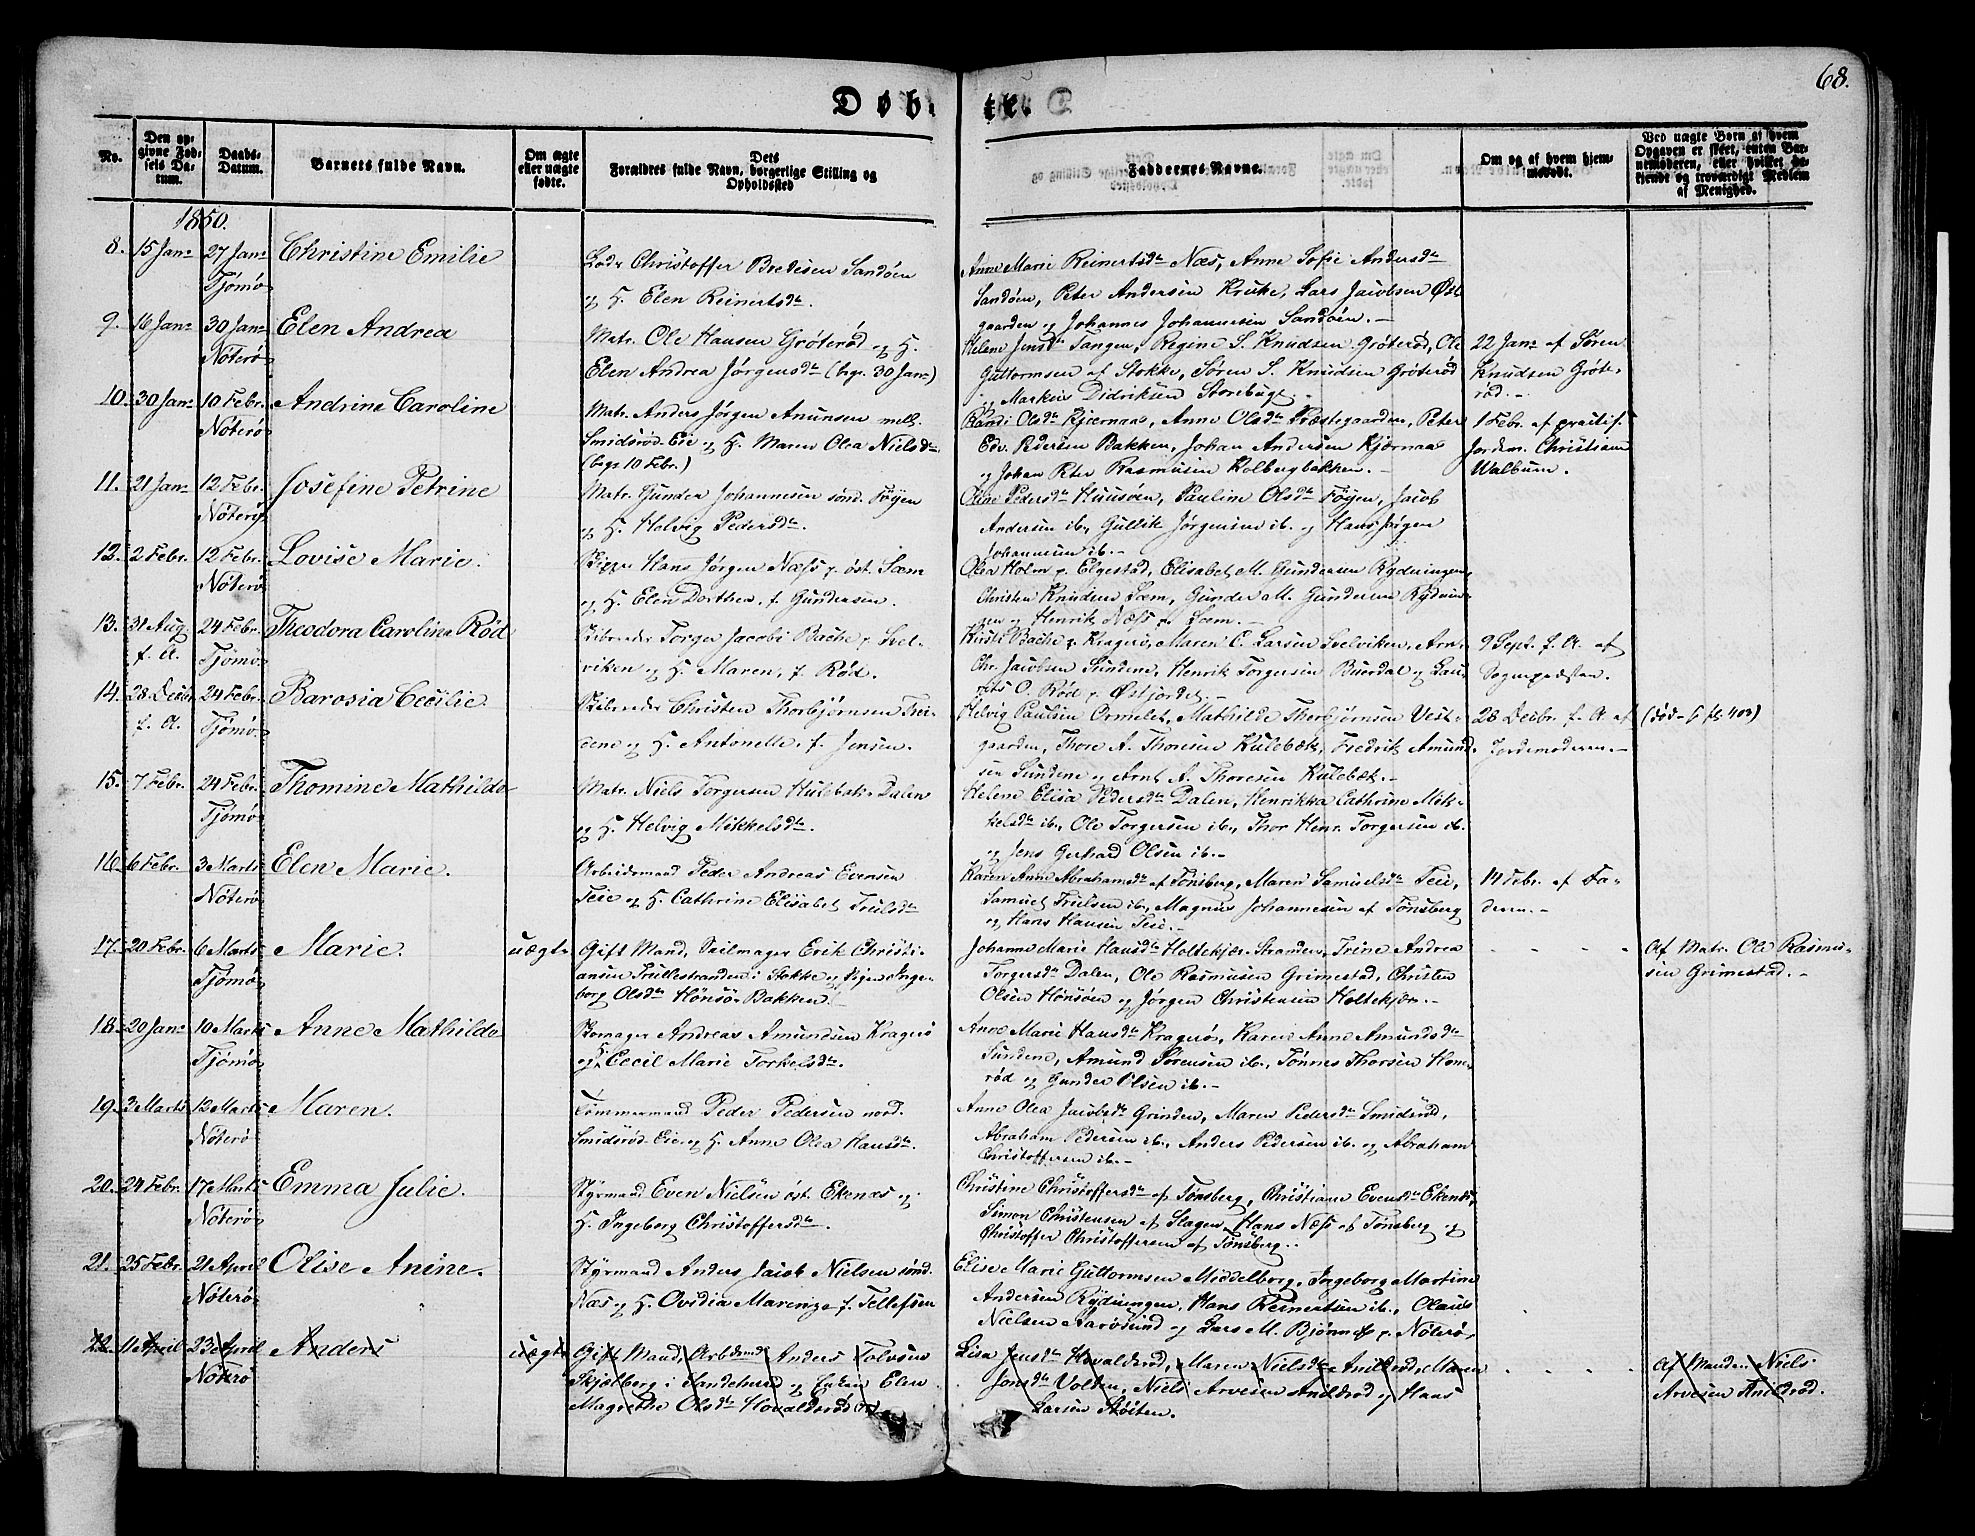 68.
Døbte.
No.
Den opgivne Fødsels Datum.
Daabs-Datum.
Barnets fulde Navn.
Om ægte eller uægte fødte.
Forældres fulde Navn, Dets borgerlige Stilling og Opholdssted
Faddernes Navne.
Om og af hvem hjemmedøbt.
Ved uægte Børn af hvem Opgaven er skeet, enten Barnemoderen, eller hvilket bekjendt og troværdigt Medlem af Menighed.
1850.
8. 15 Janr 27 Janr Tjømø Christine Emilie
Lods Christoffer Bredesen Sandøen
og H. Elen Reinertsdtr.
Anne Marie Reinertsdtr Næs, Anne Sofie Andersdtr
Sandøen, Peter Andersen Kruke, Lars Jacobsen Øst
gaarden og Johannes Johannesen Sandøen.-
9. 16 Janr 30 Janr Nøterø Elen Andrea
Matr. Ole Hansen Grøterød og H.
Elen Andrea Jørgensdtr (begr. 30 Janr)
Helene Jensdtr Tangen, Regine S. Knudsen Grøterød, Ole
Guttormsen af Stokke, Søren S. Knudsen Grøterød
og Markus Didriksen Storebugt.
22 Janr af Søren
Knudsen Grøte-
rød.
10. 30 Janr 10 Febr. Nøterø Andrine Caroline
Matr. Anders Jørgen Amunsen mell.
Smidsrød-Eie og H. Maren Olea Nielsdtr
(begr 10 Febr.)
Randi Olsdtr Kjærnaas, Anne Olsdtr Præstegaarden, Peter
Edv. Pedersen Bakken, Johan Andersen Kjørnaas
og Johan Peter Rasmusen Kolbergbakken.-
1 Febr. af practis.
Jordm. Christiane
Walbum.
11. 21 Janr 12 Febr. Nøterø Josefine Petrine
Matr. Gunder Johannesen sønd. Føyen
og H. Helvig Pedersdtr.
Oline Pedersdtr Huusøen, Pauline Olsdtr Føyen, Jacob
Andersen ib., Gullik Jørgensen ib. og Hans Jørgen
Johannesen ib.-
12. 2 Febr. 12 Febr. Nøterø Lovise Marie.
Skipper Hans Jørgen Næss p. øst. Sæm
og H. Elen Dorthea, f. Gundersen.
Olea Holm p. Elgestad, Elisabet M. Gundersen Rydningen,
Christen Knudsen Sæm, Gunder M. Gundersen Rydnin-
gen og Henrik Næss p. Sæm.-
13. 31 Aug. f. A. 24 Febr. Tjømø Theodora Caroline Rød
Skibsreder Torger Jacobi Bache p. Svel-
viken og H. Maren, f. Rød.
Kirsti Bache p. Kragerø, Maren C. Larsen Svelviken, Arn.
Chr. Jacobsen Sundene, Henrik Torgersen Buerdal og Lau-
rits O. Rød p. Østjordet.
9 Sept. f. A. af
Sognepræsten.
14. 28 Decbr. f. A. 24 Febr. Tjømø Barosia Cecilie.
Skibsreder Christen Thorbjørnsen Trei-
dene og H. Antonette, f. Jensen.
Helvig Paulsen Ormelet, Mathilde Thorbjørnsen Vest-
gaarden, Thore A. Thoresen Kulebæk, Fredrik Amund-
sen Sundene og Arnt A. Thoresen Kulebæk.-
28 Decbr. f. A. af
Jordemoderen.-
(død - S. fl. 403)
15. 7 Febr. 24 Febr. Tjømø Thomine Mathilde
Matr. Niels Torgersen Hulebak-Dalen
og H. Helvig Mikkelsdtr.
Helene Elisa Pedersdtr Dalen, Henrikka Cathrine Mik-
kelsdtr ib., Ole Torgersen ib., Thor Henr. Torgersen ib.
og Jens Gerhard Olsen ib.-
16. 6 Febr. 3 Marts Nøterø Elen Marie.
Arbeidsmand Peder Andreas Evensen
Teie og H. Cathrine Elisabet Trulsdtr
Karen Anne Abrahamsdtr af Tønsberg, Maren Samuelsdtr Teie,
Samuel Trulsen ib., Magnus Johannesen af Tønsberg
og Hans Hansen Teie.-
14 Febr. af Fa-
deren.-
17. 20 Febr. 6 Marts Tjømø Marie. uægte
Gift Mand, Seilmager Erik Christi-
ansen Trullestranden i Stokke og Pigen Inge-
borg Olsdtr Hønsø-Bakken.
Johanne Marie Hansdtr Holtekjær-Stranden, Trine Andrea
Torgersdtr Dalen, Ole Rasmusen Grimestad, Christen
Olsen Hønsøen og Jørgen Christensen Holtekjær.-
Af Matr. Ole Rasmu-
sen Grimestad.-
18. 20 Janr 10 Marts Tjømø Anne Mathilde
Skomager Andreas Amundsen Kragerø
og H. Cecil Marie Torkelsdtr.
Anne Marie Hansdtr Kragerø, Karen Anne Amundsdtr
Sundene, Amund Sørensen ib., Tønnes Thorsen Hone-
rød og Gunder Olsen ib.-
19. 3 Marts 12 Marts Nøterø Maren.
Tømmermand Peder Pedersen nord.
Smidsrød-Eie, og H. Anne Olea Hansdtr.
Anne Olea Jacobsdtr Grinden, Maren Pedersdtr Smidsrød,
Abraham Pedersen ib., Anders Pedersen ib. og Abraham
Christoffersen ib.-
20. 24 Febr. 17 Marts Nøterø Emma Julie.
Styrmand Even Nielsen øst. Ekenæs og
H. Ingeborg Christoffersdtr.
Christine Christoffersdtr af Tønsberg, Christiane Evensdtr Ekenæs,
Simon Christensen af Slagen, Hans Næss af Tønsberg og
Christoffer Christoffersen af Tønsberg.-
21. 25 Febr. 21 April Nøterø Olise Anine.
Styrmand Anders Jacob Nielsen sønd.
Næs og H. Ovidia Marenze f. Tellefsen
Elise Marie Guttormsen Middelborg, Ingeborg Martine
Andersen Rydningen, Hans Reinertsen ib., Olaus
Nielsen Aarøsund og Lars M. Bjønnes p. Nøterø.
22. 11 April 23 April Nøterø Anders uægte
Gift Mand, Arbdsmd Anders Tolvsen
Skjelberg i Sandeherred og Enken Elen
Magrethe Olsdtr Hovaldsrød
Lisa Jensdtr Hovaldsrød, Maren Nielsdtr Anildrød, Maren
Jonsdtr Volden, Niels Arvesen Anildrød og Hans
Larsen Støiten.
Af Manden Niels
Arvesen Anildrød.